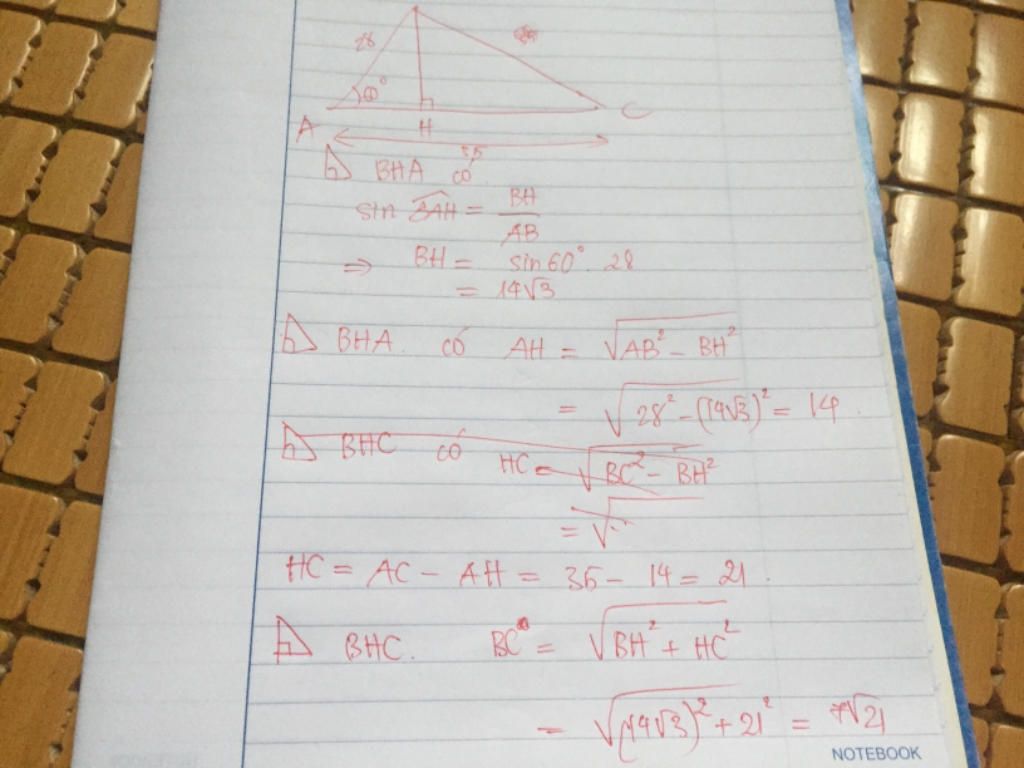 28
60°
A H C
35
BHA có
sin BAH = BH / AB
⇒ BH = sin 60° . 28
= 14√3
BHA . có AH = √AB² - BH²
= √28² - (14√3)² = 14 .
BHC có HC = √BC² - BH²
= √
HC = AC - AH = 35 - 14 = 21 .
BHC . BC = √BH² + HC²
= √(14√3)² + 21² = 7√21
NOTEBOOK